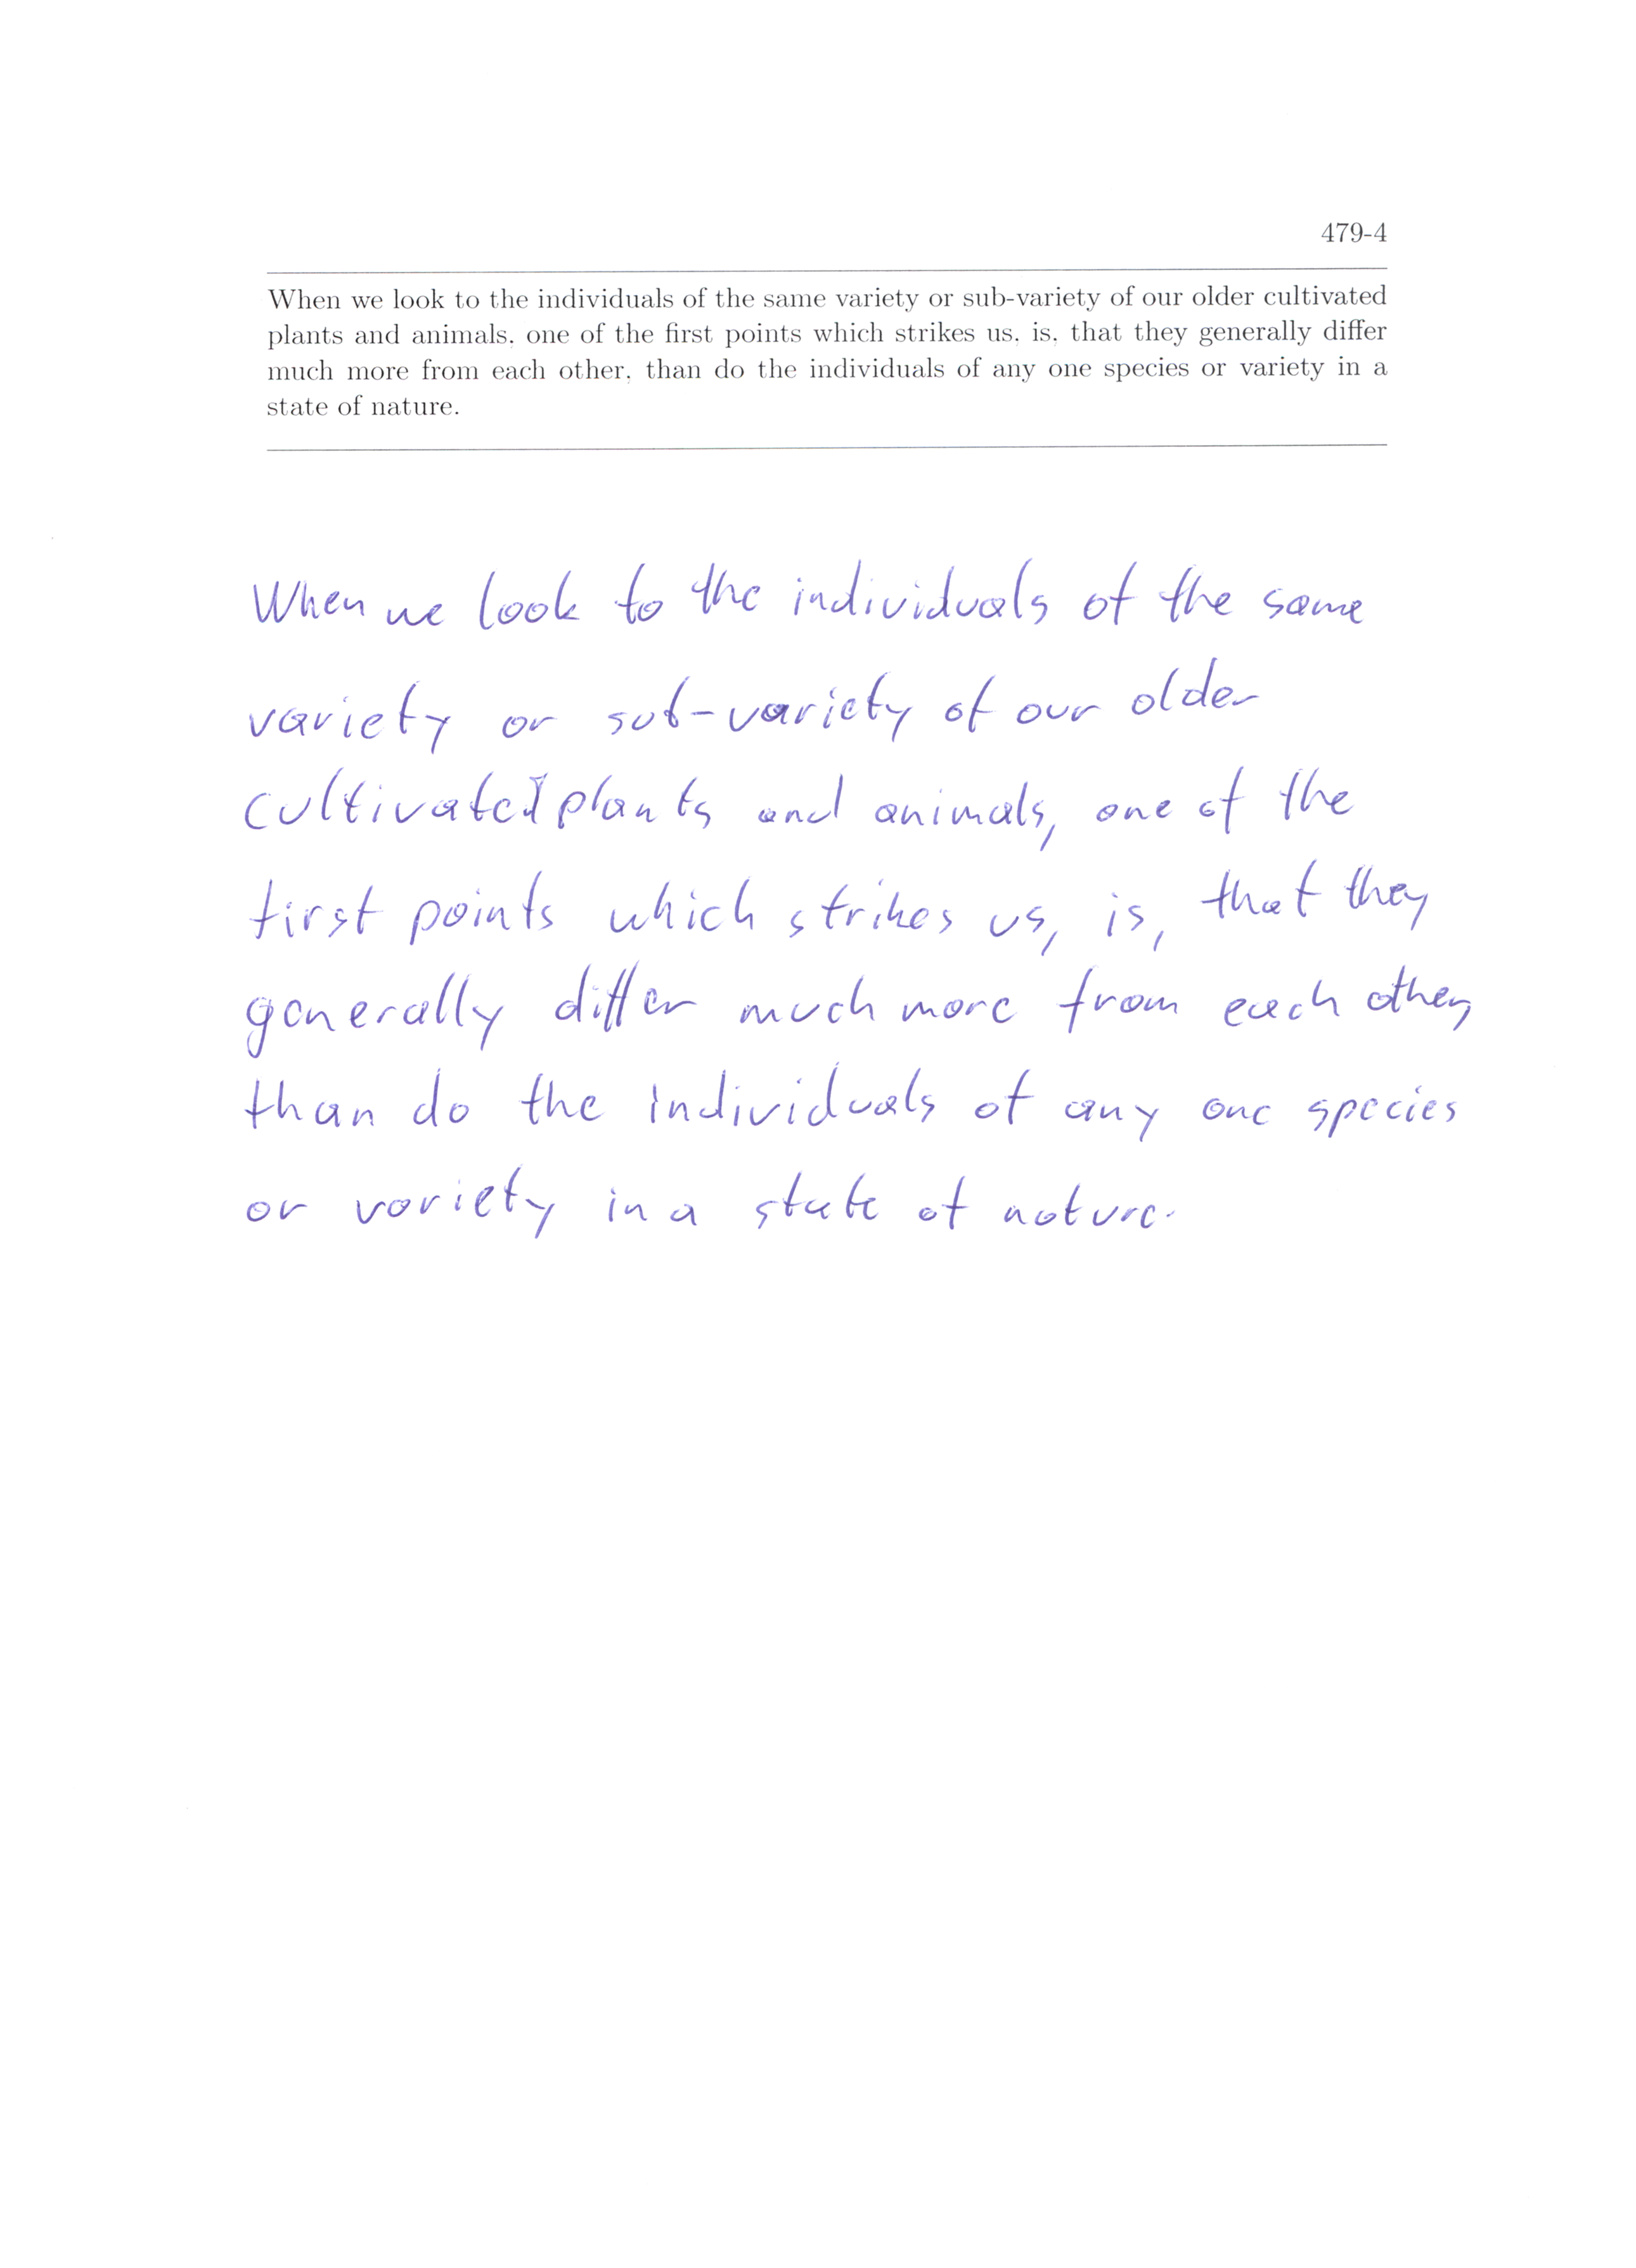 479-4
When we look to the individuals of the same variety or sub-variety of our older cultivated
plants and animals, one of the first points which strikes us, is, that they generally differ
much more from each other, than do the individuals of any one species or variety in a
state of nature.
When we look to the individuals of the same
variety or sub-variety of our older
cultivated plants and animals, one of the
first points which strikes us, is, that they
generally differ much more from each other,
than do the individuals of any one species
or variety in a state of nature.